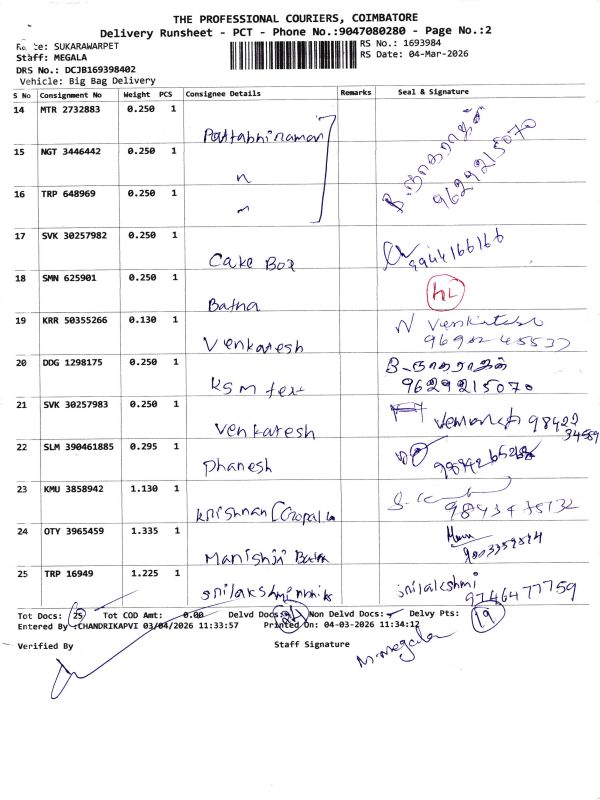 THE PROFESSIONAL COURIERS, COIMBATORE
Delivery Runsheet - PCT - Phone No.:9047080280 - Page No.:2
Route: SUKARAWARPET
RS No.: 1693984
Staff: MEGALA
RS Date: 04-Mar-2026
DRS No.: DCJB169398402
Vehicle: Big Bag Delivery
S No Consignment No Weight PCS Consignee Details Remarks Seal & Signature
14 MTR 2732883 0.250 1 Pattabhiraman
15 NGT 3446442 0.250 1 "
16 TRP 648969 0.250 1 "
B. நாகராஜன்
9629215070
17 SVK 30257982 0.250 1 Cake Box 9944166166
18 SMN 625901 0.250 1 Batna hL
19 KRR 50355266 0.130 1 Venkatesh N Venkatesh
20 DDG 1298175 0.250 1 KSM tex B-நாகராஜன்
9629215070
21 SVK 30257983 0.250 1 Venkatesh
22 SLM 390461885 0.295 1 Dhanesh
23 KMU 3858942 1.130 1 Krishnan
24 OTY 3965459 1.335 1 Manishji
25 TRP 16949 1.225 1 srilakshmi srilakshmi
9746477759
Tot Docs: 25 Tot COD Amt: 0.00 Delvd Docs: 24 Non Delvd Docs: Delvy Pts: 19
Entered By :CHANDRIKAPVI 03/04/2026 11:33:57 Printed On: 04-03-2026 11:34:12
Verified By Staff Signature
M. Megala